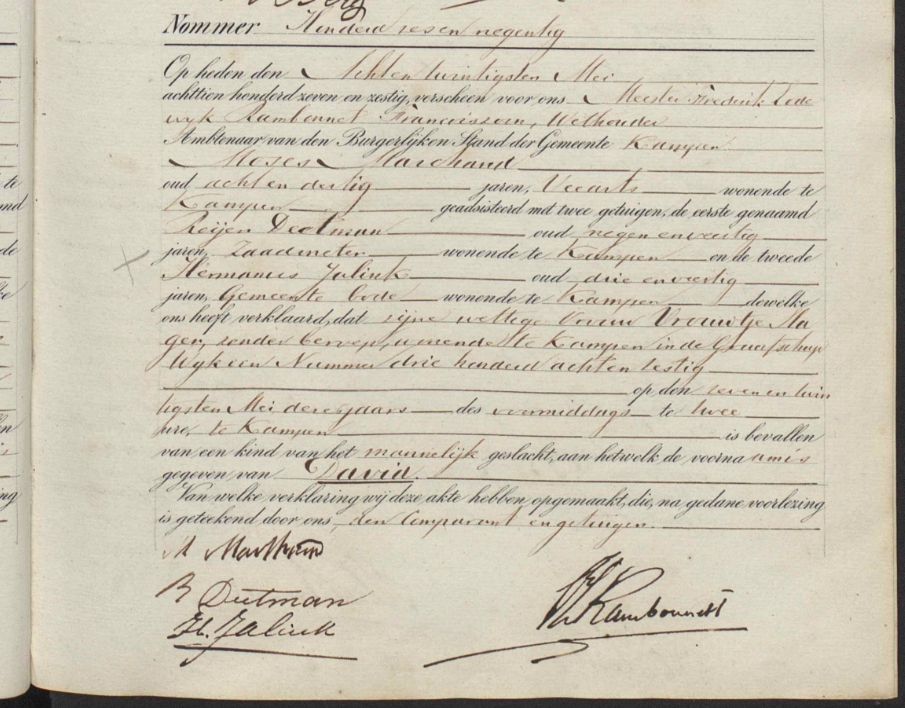 Nommer Honderd zes en negentig
Op heden den Acht en twintigsten Mei
achttien honderd zeven en zestig, verscheen voor ons Meester Frederik Lode
wyk Rambonnet Franciszoon, Wethouder
Ambtenaar van den Burgerlijken Stand der Gemeente Kampen
Moses Marchand
oud acht en dertig jaren, Veearts wonende te
Kampen geadsisteerd met twee getuigen, de eerste genaamd
Reijer Deetman oud negen en veertig
jaren, Zaadmeter wonende te Kampen en de tweede
Hermanus Jalink oud drie en veertig
jaren, Gemeente bode wonende te Kampen dewelke
ons heeft verklaard, dat zijne wettige Vrouw Vrouwtje Ha
ger, zonder beroep, wonende te Kampen in de Graafschap
Wyk een Nummer drie honderd acht en zestig
op den zeven en twin
tigsten Mei dezes jaars des voormiddags te twee
ure, te Kampen is bevallen
van een kind van het mannelijk geslacht, aan hetwelk de voornaam is
gegeven van David.
Van welke verklaring wij deze akte hebben opgemaakt, die, na gedane voorlezing
is geteekend door ons, den Comparant en getuigen.
M Marchand
R Deetman
H. Jalink
Rambonnet